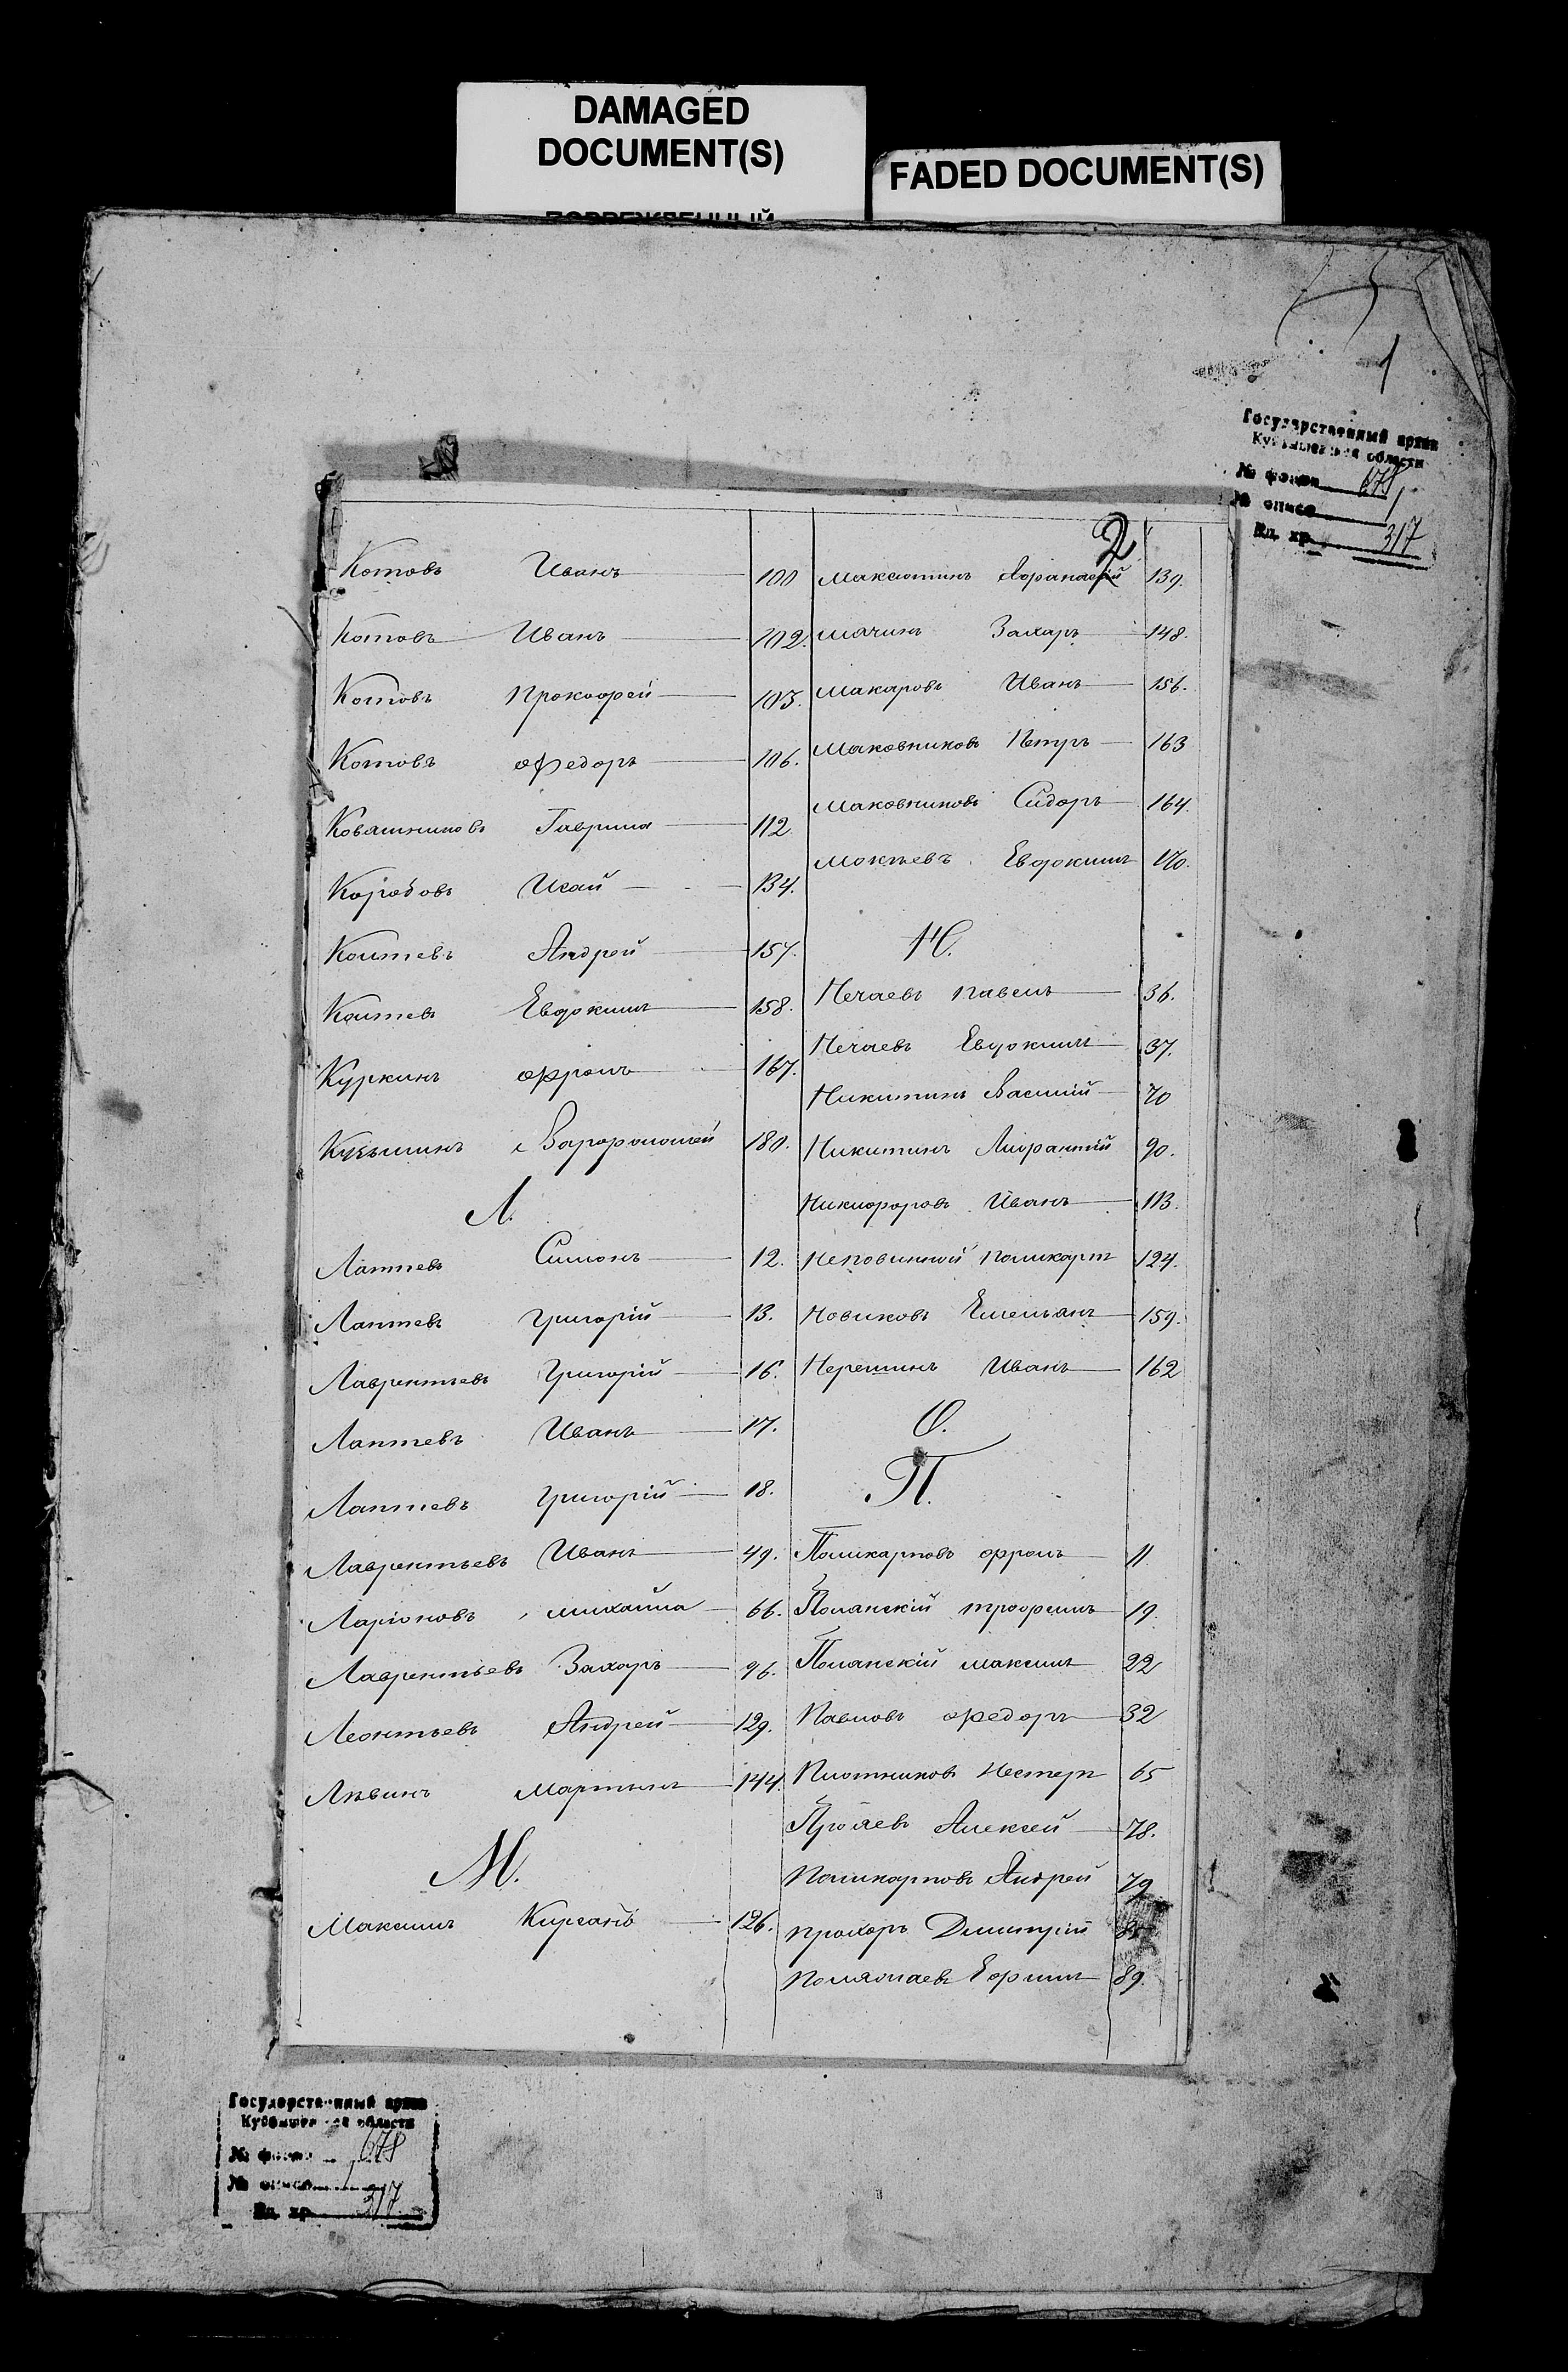 DAMAGED
DOCUMENT(S)
FADED DOCUMENT(S)
1
Государственный архив
Куйбышевской области
№ фонда 678
№ описи 1
Ед. хр. 317
2
Котовъ Иванъ 100
Котовъ Иванъ 102.
Котовъ Прокофей 103.
Котовъ Федоръ 106.
Ковашниковъ Гаврила 112.
Коробовъ Исай 134.
Коптевъ Андрей 157.
Коптевъ Евдокимъ 158.
Куркинъ Фролъ 167.
Кузьминъ Варфоломей 180.
Л.
Лаптевъ Симонъ 12.
Лаптевъ Григорій 13.
Лаврентьевъ Григорій 16.
Лаптевъ Иванъ 17.
Лаптевъ Григорій 18.
Лаврентьевъ Иванъ 49.
Ларіоновъ Михайла 66.
Лаврентьевъ Захаръ 96.
Леонтьевъ Андрей 129.
Лявинъ Мартынъ 144.
М.
Максимъ Кирсанъ 126.
Максютинъ Афанасій 139.
Мачинъ Захаръ 148.
Макаровъ Иванъ 156.
Маковниковъ Петръ 163
Маковниковъ Сидоръ 164.
Мокѣевъ Евдокимъ 170.
Н.
Нечаевъ Павелъ 36.
Нечаевъ Евдокимъ 37.
Никитинъ Василій 70
Никитинъ 90.
Никифоровъ Иванъ 113.
Неповинной Поликарпъ 124.
Новиковъ Емельянъ 159.
Нерешинъ Иванъ 162
О.
П.
Поликарповъ Фролъ 11
Полянскій Трофимъ 19.
Полянскій Максимъ 22
Павловъ Федоръ 32
Плотниковъ Нестеръ 65
Алексей 78.
Поликарповъ Андрей 79
Прохоръ Дмитрій
Ефимъ 89.
Государственный архив
Куйбышевской области
№ фонда 678
№ описи 1
Ед. хр. 317